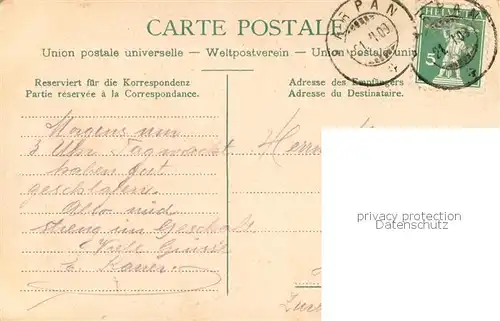 CARTE POSTALE
Union postale universelle – Weltpostverein – Union postale uni
Reserviert für die Korrespondenz
Partie réservée à la Correspondance.
Adresse des Empfängers
Adresse du Destinataire.
5
Morgens um
3 Uhr Tagwacht
haben gut
geschlafen.
Also nid
streng im Geschäft
Viele Grüsse
Herrn
privacy protection